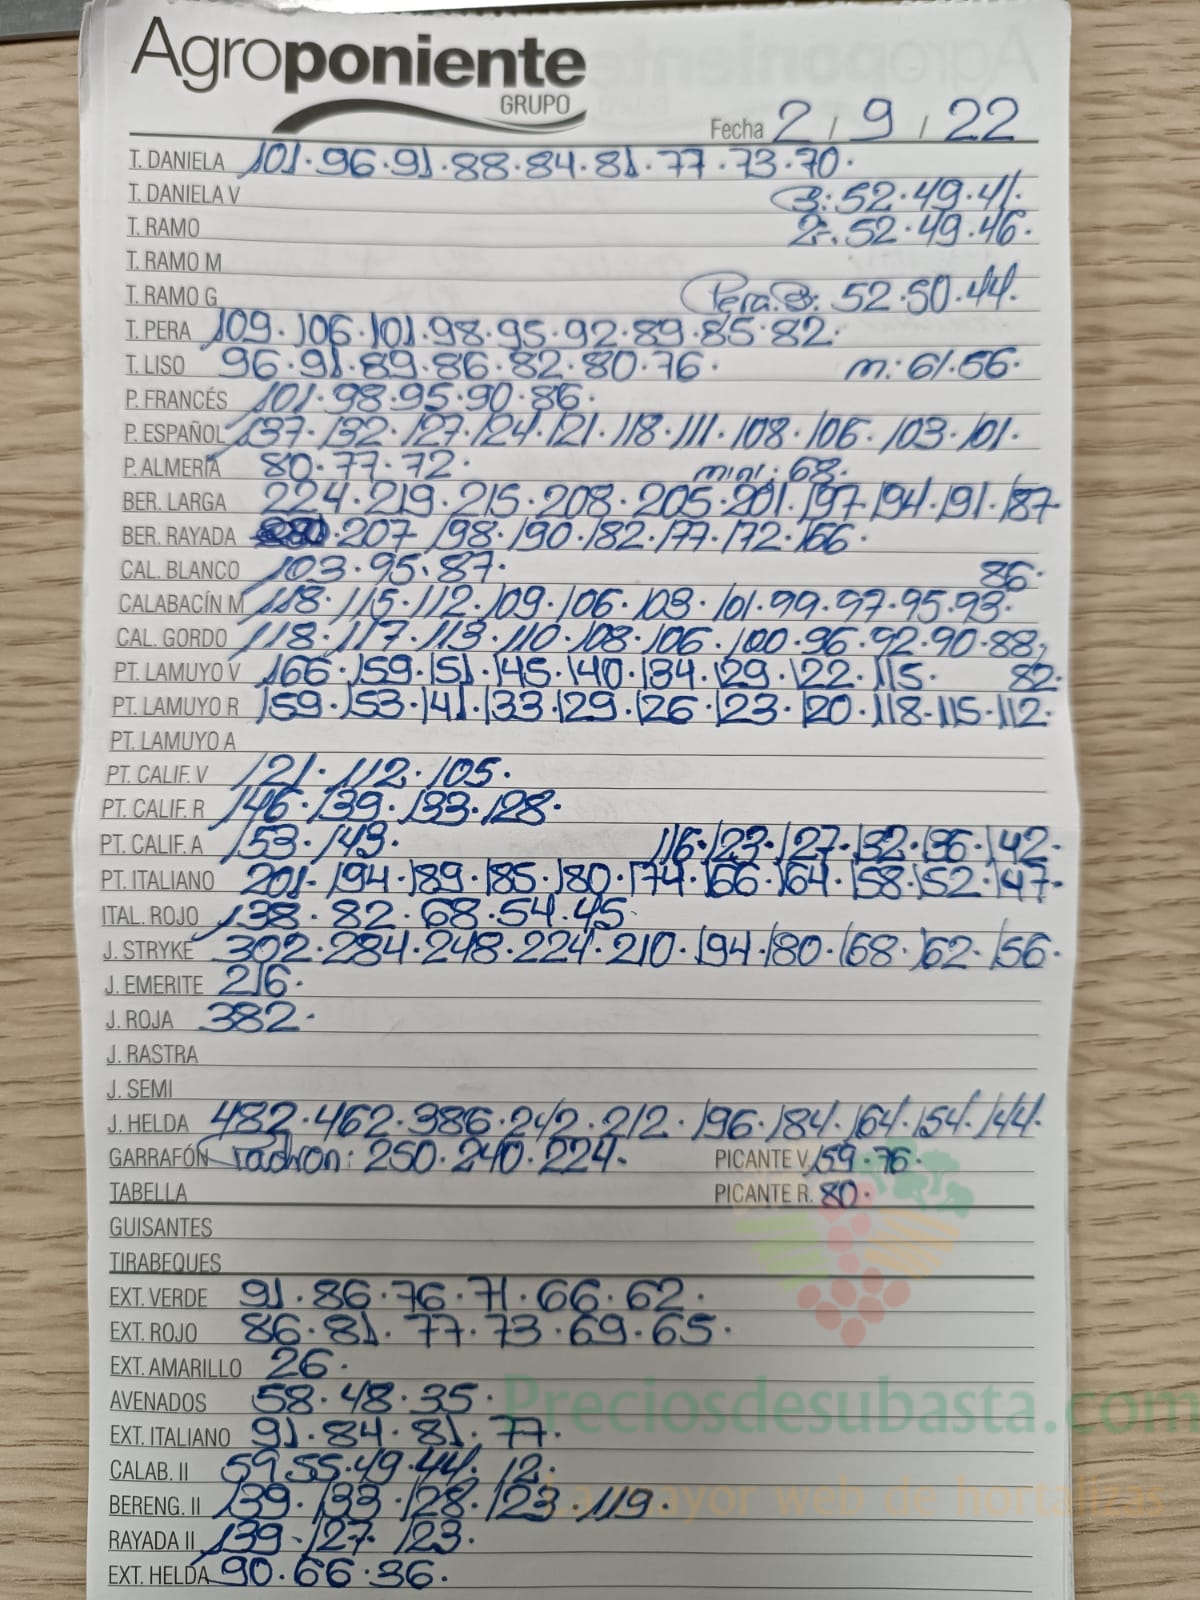 Agroponiente
GRUPO
Fecha 2 / 9 / 22
T. DANIELA 101·96·91·88·84·81·77·73·70·
T. DANELA V 3:52·49·41·
T. RAMO 2ª.52·49·46·
T. RAMO M
T. RAMO G Pera.3: 52·50·44·
T. PERA 109·106·101·98·95·92·89·85·82·
T. LISO 96·91·89·86·82·80·76· m.:61·56·
P. FRANCÉS 101·98·95·90·86·
P. ESPAÑOL 137·132·127·124·121·118·111·108·106·103·101·
P. ALMERÍA 80·77·72· mini:68·
BER. LARGA 224·219·215·208·205·201·197·194·191·187
BER. RAYADA ·207·198·190·182·177·172·166·
CAL. BLANCO 103·95·87· 86·
CALABACÍN M 118·115·112·109·106·103·101·99·97·95·93·
CAL. GORDO 118·117·113·110·108·106·100·96·92·90·88,
PT. LAMUYO V 166·159·151·145·140·134·129·122·115· 82·
PT. LAMUYO R 159·153·141·133·129·126·123·120·118·115·112·
PT. LAMUYO A
PT. CALIF. V 121·112·105·
PT. CALIF. R 146·139·133·128·
PT. CALIF. A 153·143· 116·123·127·132·136·142·
PT. ITALIANO 201·194·189·185·180·174·166·164·158·152·147·
ITAL. ROJO 138·82·68·54·45·
J. STRYKE 302·284·248·224·210·194·180·168·162·156·
J. EMERITE 216·
J. ROJA 382·
J. RASTRA
J. SEMI
J. HELDA 482·462·386·242·212·196·184·164·154·144·
GARRAFÓN Padron: 250·240·224· PICANTE V. 159·76·
TABELLA PICANTE R. 80·
GUISANTES
TIRABEQUES
EXT. VERDE 91·86·76·71·66·62·
EXT. ROJO 86·81·77·73·69·65·
EXT. AMARILLO 26·
AVENADOS 58·48·35·
Preciosdesubasta.com
EXT. ITALIANO 91·84·81·77·
CALAB. II 59 55·49·44·12·
La mayor web de hortalizas
BERENG. II 139·133·128·123·119·
RAYADA II 139·127·123·
EXT. HELDA 90·66·36·